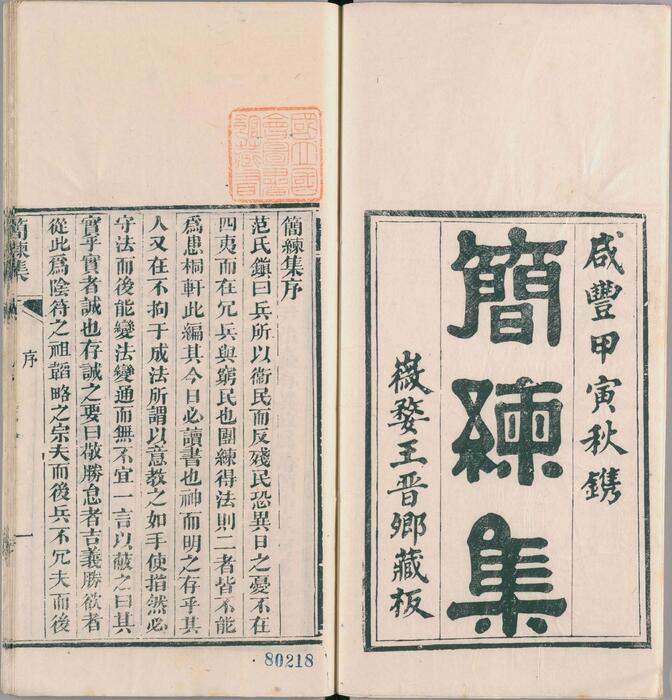 咸豐甲寅秋鐫
簡練集
嶶婺王晋卿藏板
國立國
會圖書
館藏書
簡練集序
范氏鎮曰兵所以衞民而反殘民恐異日之憂不在
四夷而在冗兵與窮民也團練得法則二者皆不能
爲患桐軒此編其今日必讀書也神而明之存乎其
人又在不拘于成法所謂以意教之如手使指然必
守法而後能變法變通而無不宜一言以蔽之曰其
實乎實者誠也存誠之要曰敬勝怠者吉義勝欲者
從此爲陰符之祖韜略之宗夫而後兵不冗夫而後
簡練集
序
一
80218